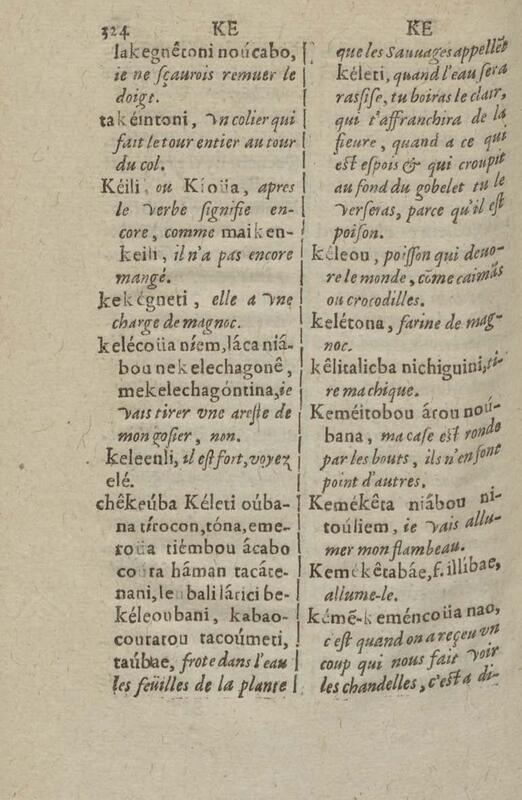 324 KE KE
lakegnêtoni noúcabo,
ie ne sçaurois remuer le
doigt.
takéintoni, vn colier qui
fait le tour entier au tour
du col.
Kéili ou Kíoüa, apres
le verbe signifie en-
core, comme maiken-
keili, il n'a pas encore
mangé.
kekégneti, elle a vne
charge de magnoc.
kelécoüa níem, láca niá-
bou nekelechagonê,
mekelechagóntina, ie
vais tirer vne areste de
mon gosier, non.
keleenli, il est fort, voyez
elé.
chêkeúba Kéleti oúba-
na tírocon, tóna, eme-
roüa tiémbou ácabo
coüra háman tacáte-
nani, leubali lárici be-
kéleoubani, kabao-
couratou tacoúmeti,
taúbae, frote dans l'eau
les feüilles de la plante
que les Sauuages appellẽt
kéleti, quand l'eau sera
rassise, tu boiras le clair,
qui t'affranchira de la
fieure, quand a ce qui
est espois & qui croupit
au fond du gobelet tu le
verseras, parce qu'il est
poison.
kéleou, poisson qui deuo-
re le monde, cõme caimãs
ou crocodilles.
kelétona, farine de mag-
noc.
kêlitalicba nichiguini, ti-
re ma chique.
Keméitobou átou noú-
bana, ma case est ronde
par les bouts, ils n'en font
point d'autres.
Kemékêta niábou ni-
toúliem, ie vais allu-
mer mon flambeau.
Kemékêtabáe, f. illíbae,
allume-le.
kémẽ-keméncoüa nao,
c'est quand on a reçeu vn
coup qui nous fait voir
les chandelles, c'est a di-